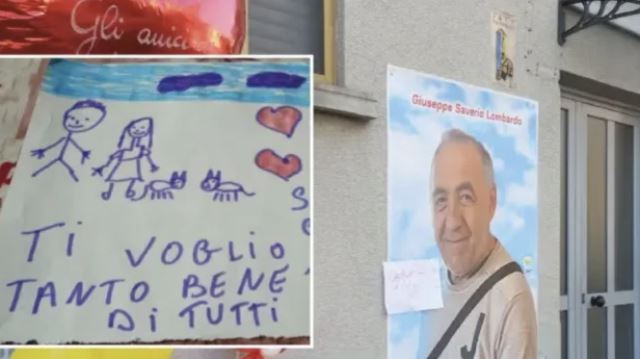 Gli amici
TI VOGLIO
TANTO BENE
Di TUTTI
Giuseppe Saverio Lombardo